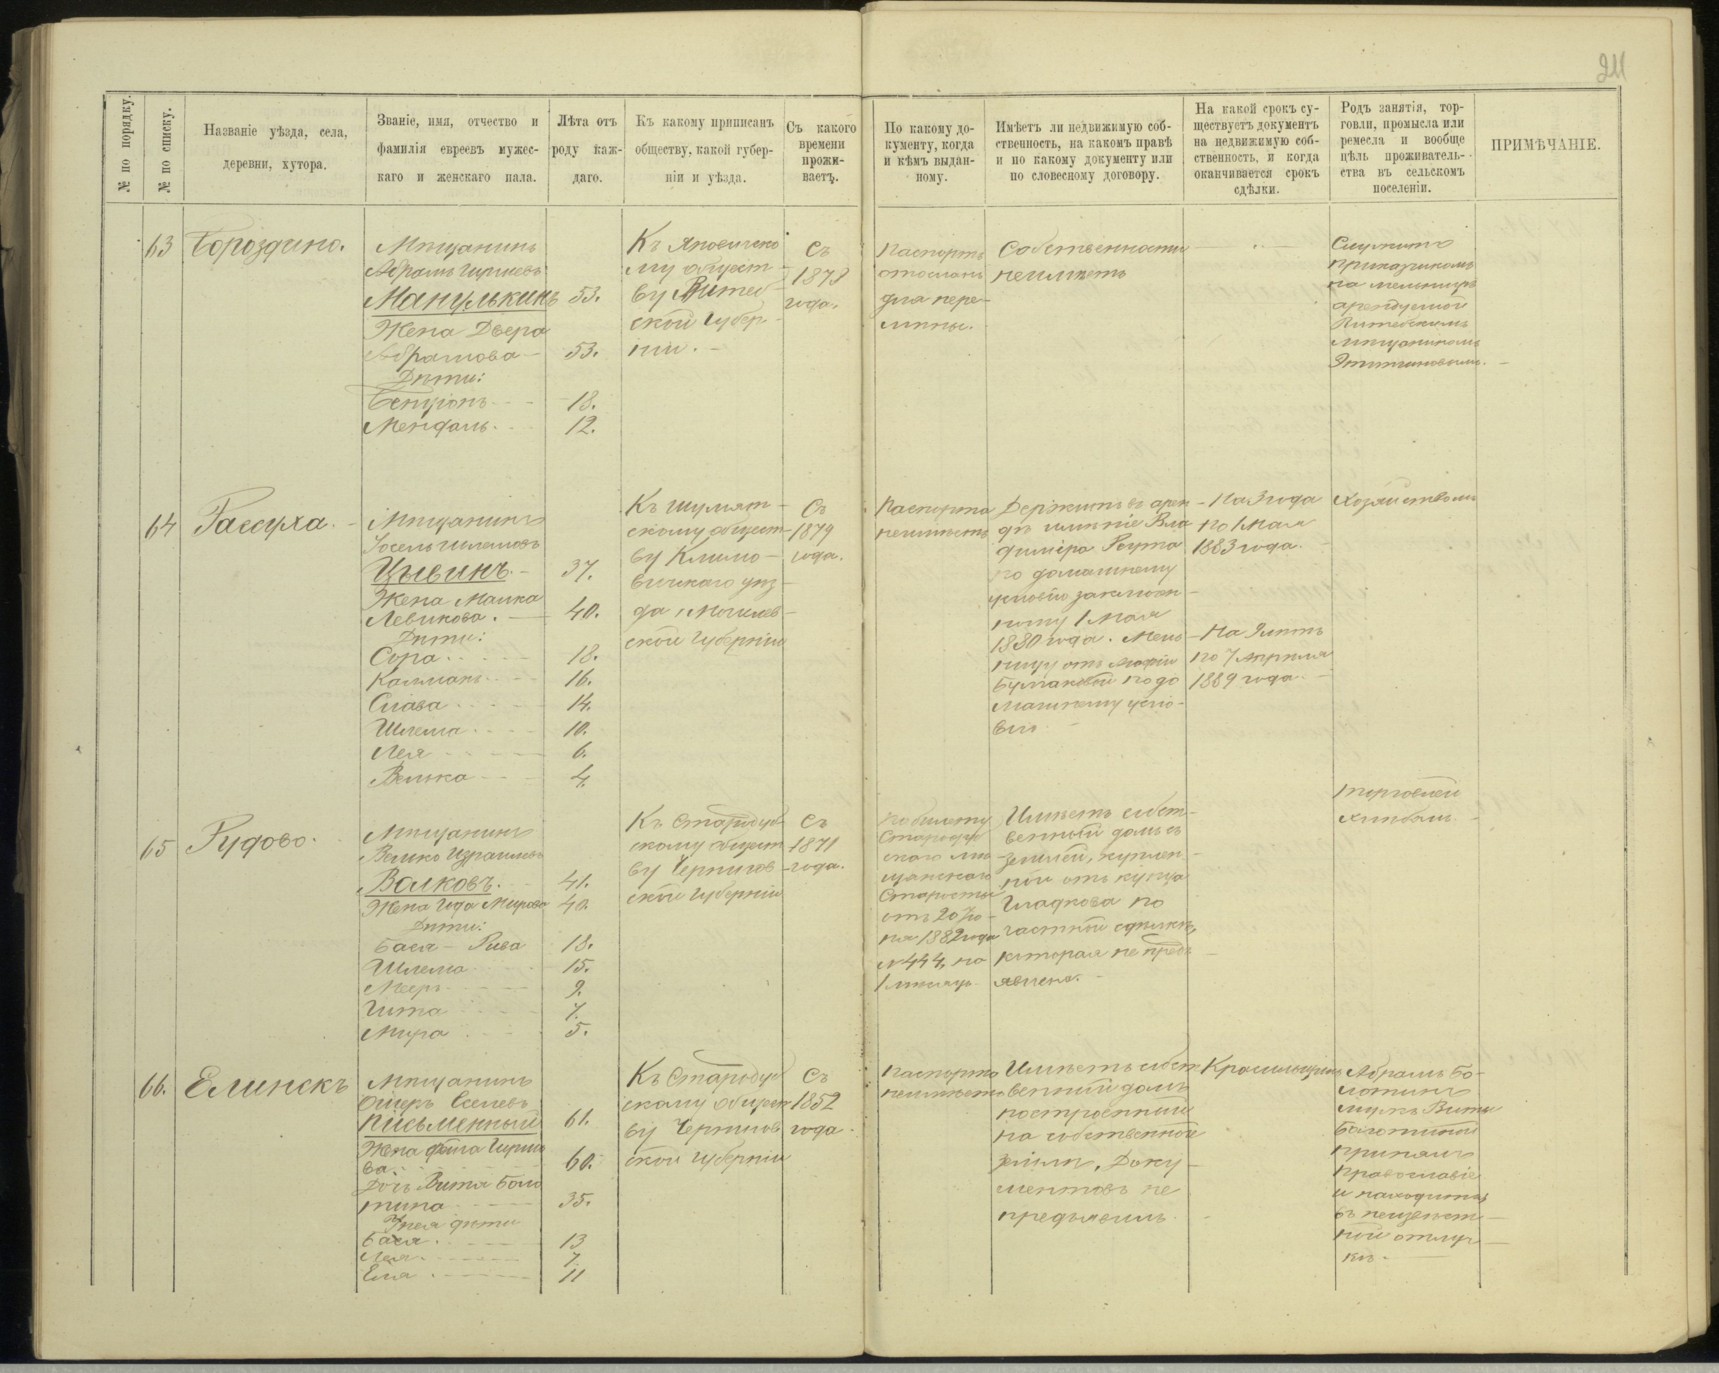 211
№ по порядку.
№ по списку.
Названіе уѣзда, села,
деревни, хутора.
Званіе, имя, отчество и
фамилія евреевъ мужес-
каго и женскаго пала.
Лѣта отъ
роду каж-
даго.
Къ какому приписанъ
обществу, какой губер-
ніи и уѣзда.
Съ какого
времени
прожи-
ваетъ.
По какому до-
кументу, когда
и кѣмъ выдан-
ному.
Имѣетъ ли недвижимую соб-
ственность, на какомъ правѣ
и по какому документу или
по словесному договору.
На какой срокъ су-
ществуетъ документъ
на недвижимую соб-
ственность, и когда
оканчивается срокъ
сдѣлки.
Родъ занятія, тор-
говли, промысла или
ремесла и вообще
цѣль проживатель-
ства въ сельскомъ
поселеніи.
ПРИМѢЧАНІЕ.
63
Бороздино.
Мѣщанинъ
Абрамъ Гиршевъ
Манулькинъ 53.
Жена Двера
Абрамова - 53.
Дѣти:
Бенціонъ - - 18.
Мендаль. - - 12.
Къ Яновичско
му общест-
ву Витеб-
ской Губер-
ніи. -
Съ
1878
года.
Паспортъ
отосланъ
для пере-
мѣны.
Собственности
неимѣетъ
Служитъ
прикащикомъ
на мельницѣ
арендуемой
Витебскимъ
мѣщаниномъ
64
Рассуха. -
Мѣщанинъ
Іосель Шлемовъ
Цывинъ. - 37.
Жена Малка
Левикова. - 40.
Дѣти:
Сора - - 18.
Калманъ - - 16.
Слава - - 14.
Шлема - - 10.
Лея - - 6.
Велька - - 4.
Къ Шумят-
скому общест-
ву Климо-
вичскаго уѣз-
да, Могилев-
ской Губерніи
Съ
1879
года.
Паспорта
неимѣетъ
Держитъ въ арен-
дѣ имѣніе Вла
диміра Роута
по домашнему
условію заключен-
ному 1 Мая
1880 года. Мель-
ницу отъ Марфіи
Бумаковой по до
машнему усло-
вію -
- На 3 года
по 1 Мая
1883 года. -
- На 9 лѣтъ
по 7 Апрѣля
1889 года. -
Хозяйствомъ
65
Рудово.
Мѣщанинъ
Велько Израилевъ
Волковъ. - 41.
Жена Года Мирова 40
Дѣти:
Бася - Рива 18.
Шлема - - 15.
Мееръ - - 9.
Гита - - 7.
Мира - - 5.
Къ Стародуб-
скому общест-
ву Чернигов-
ской Губерніи
Съ
1871
года.
По билету
Стародуб-
скаго мѣ-
щанскаго
Старосты
отъ 20 Ію-
ня 1882 года
№ 444, на
1 мѣсяцъ -
Имѣетъ собст-
венный домъ съ
землей, куплен-
ной отъ купца
Гладкова по
частной сдѣлкѣ,
которая не предъ-
явлена. -
торговлей
хлѣбомъ. -
66.
Елинскъ
Мѣщанинъ
Ошеръ Еселевъ
Письменный 61.
Жена Фейга Гирше
ва: - - 60.
Дочь Витя Боло
тина - - 35.
У нея дѣти
Бася. - - 13
Лея. - - 7.
Еля. - - 11
Къ Стародуб
скому общест
ву Чернигов
ской Губерніи
Съ
1852
года.
Паспорта
неимѣетъ
Имѣетъ собст
венный домъ
построенный
на собственной
земли, Доку-
ментовъ не
предъявилъ. -
Красильщикъ
Абрамъ Бо-
лотинъ
мужъ Вити
Болотиной
принялъ
Православіе
и находится
въ неизвѣст-
ной отлуч-
кѣ. -